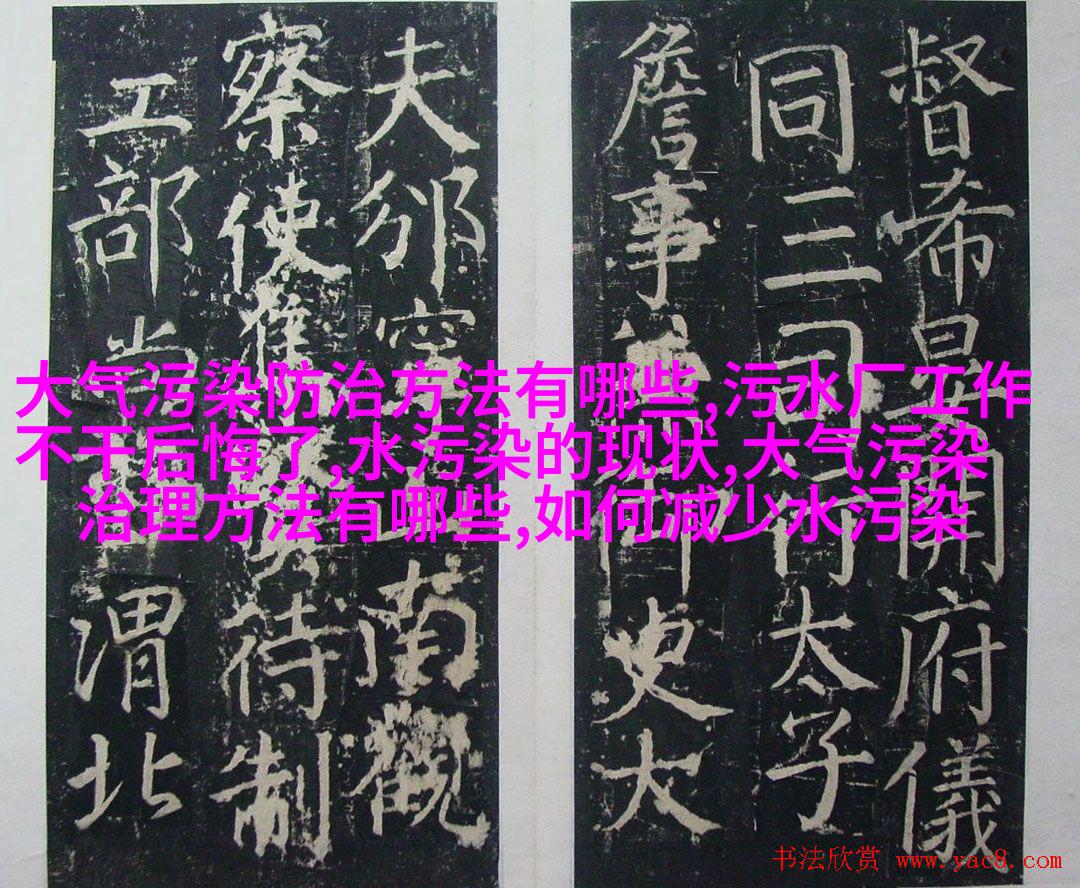 督希晏開府儀
同三司行太子
詹事兼御史大
夫邠寧南觀
察使待制
工部尚渭北
大气污染防治方法有哪些,污水厂工作
不干后悔了,水污染的现状,大气污染
治理方法有哪些,如何减少水污染
书法欣赏 www.yac8.com